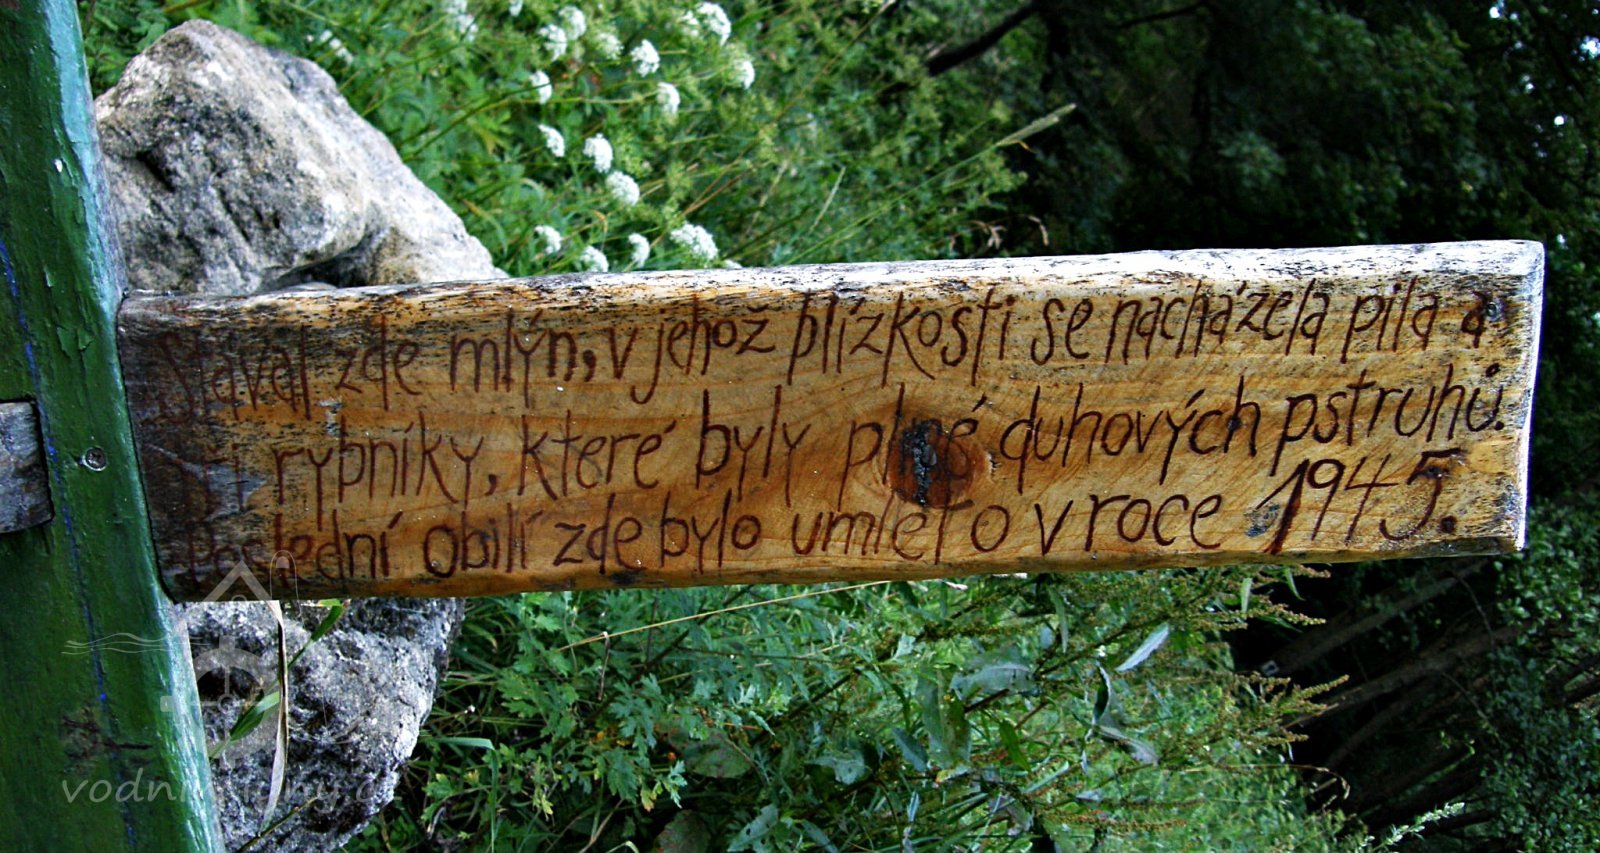 Stával zde mlýn, v jehož blízkosti se nacházela pila a
tři rybníky, které byly plné duhových pstruhů.
Poslední obilí zde bylo umleto v roce 1945.
vodnimlyny.cz